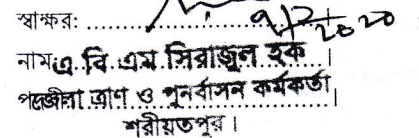 স্বাক্ষরঃ ........................
নামঃ এ. বি. এম. সিরাজুল হক
জেলা ত্রাণ ও পুনর্বাসন কর্মকর্তা
শরীয়তপুর।